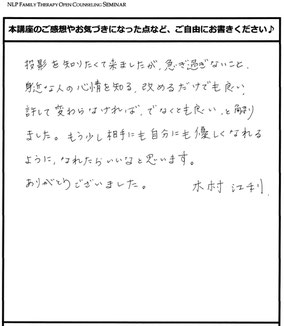 NLP FAMILY THERAPY OPEN COUNSELING SEMINAR
本講座のご感想やお気づきになった点など、ご自由にお書きください♪
投影を知りたくて来ましたが、急ぎ過ぎないこと、
身近な人の心情を知る、改めるだけでも良い、
許して変わらなければ、でなくとも良い、と解り
ました。もう少し相手にも自分にも優しくなれる
ように、なれたらいいなと思います。
ありがとうございました。 木村 江利